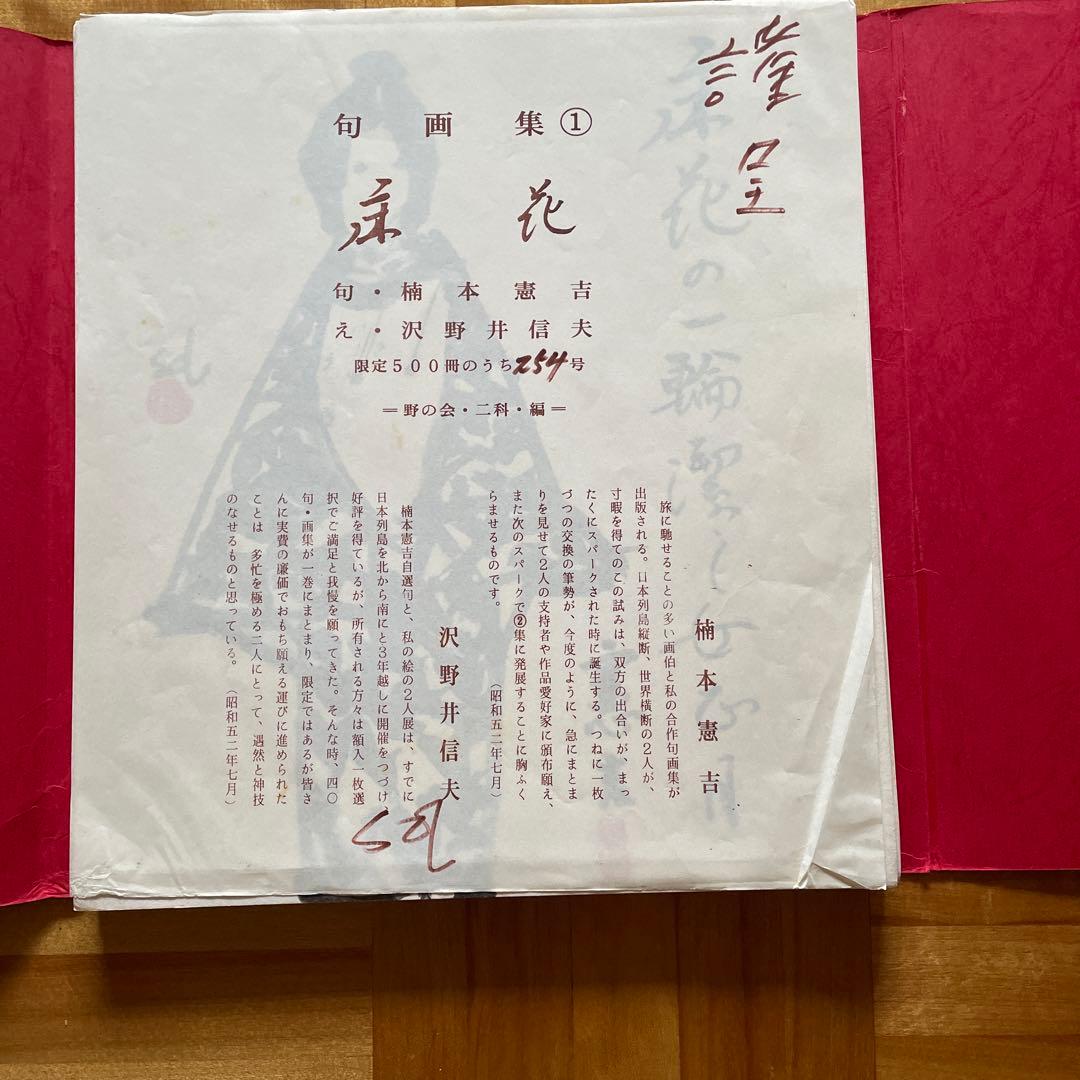 謹呈
句画集①
床花
句・楠本憲吉
え・沢野井信夫
限定500冊のうち254号
＝野の会・二科・編＝
楠本憲吉
旅に馳せることの多い画伯と私の合作句画集が
出版される。日本列島縦断、世界横断の2人が、
寸暇を得てのこの試みは、双方の出合いが、まっ
たくにスパークされた時に誕生する。つねに一枚
づつの交換の筆勢が、今度のように、急にまとま
りを見せて2人の支持者や作品愛好家に頒布願え、
また次のスパークで②集に発展することに胸ふく
らませるものです。
（昭和五二年七月）
沢野井信夫
楠本憲吉自選句と、私の絵の2人展は、すでに
日本列島を北から南にと3年越しに開催をつづけ、
好評を得ているが、所有される方々は額入一枚選
択でご満足と我慢を願ってきた。そんな時、四〇
句・画集が一巻にまとまり、限定ではあるが皆さ
んに実費の廉価でおもち願える運びに進められた
ことは　多忙を極める二人にとって、遇然と神技
のなせるものと思っている。
（昭和五二年七月）